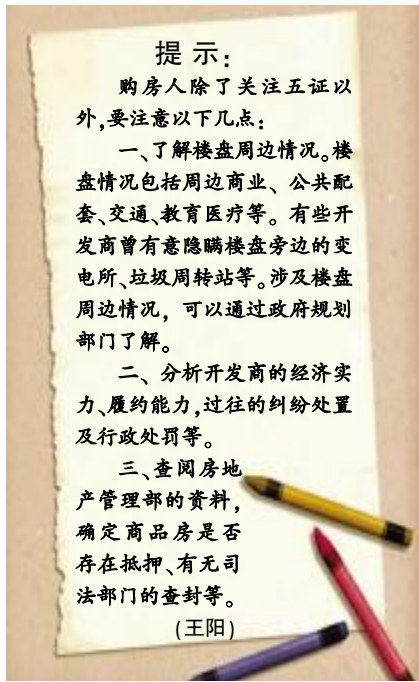 提示：
购房人除了关注五证以
外,要注意以下几点：
一、了解楼盘周边情况。楼
盘情况包括周边商业、公共配
套、交通、教育医疗等。有些开
发商曾有意隐瞒楼盘旁边的变
电所、垃圾周转站等。涉及楼盘
周边情况，可以通过政府规划
部门了解。
二、分析开发商的经济实
力、履约能力,过往的纠纷处置
及行政处罚等。
三、查阅房地
产管理部的资料，
确定商品房是否
存在抵押、有无司
法部门的查封等。
(王阳)